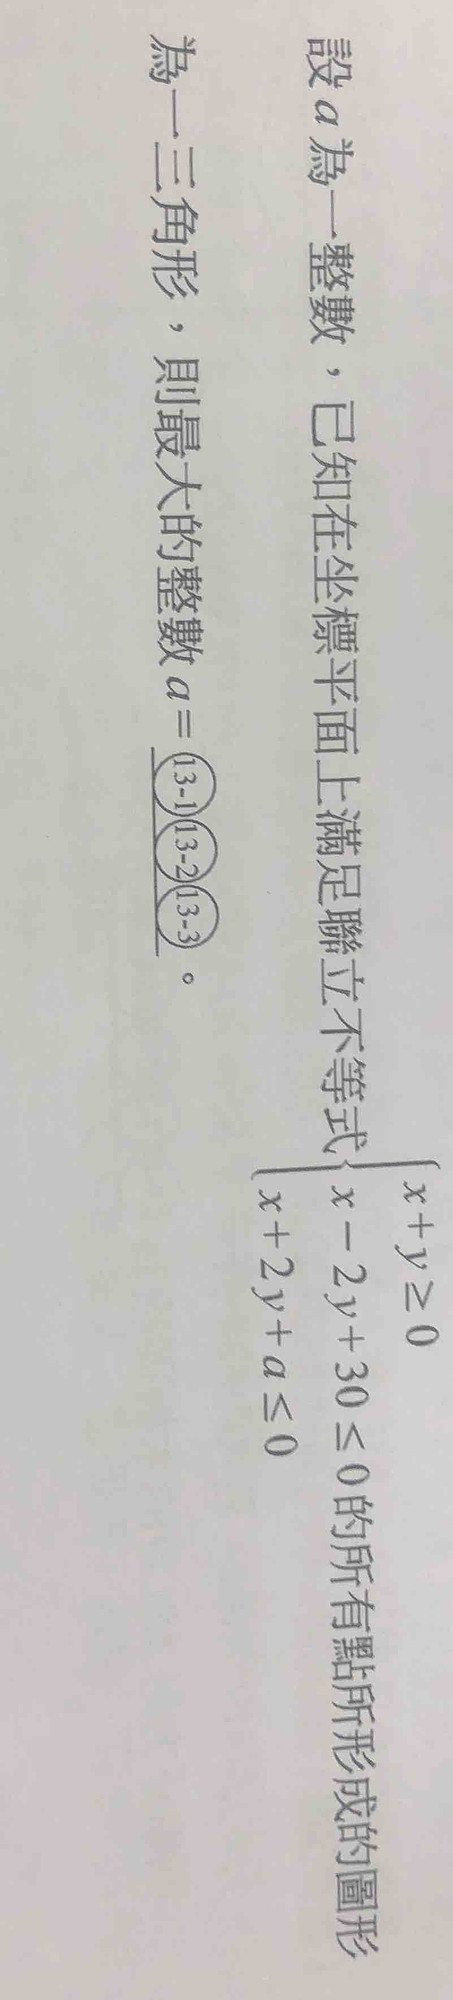 設 a 為一整數，已知在坐標平面上滿足聯立不等式 { x+y≥0
x−2y+30≤0 的所有點所形成的圖形
x+2y+a≤0
為一三角形，則最大的整數 a = (13-1)(13-2)(13-3)。